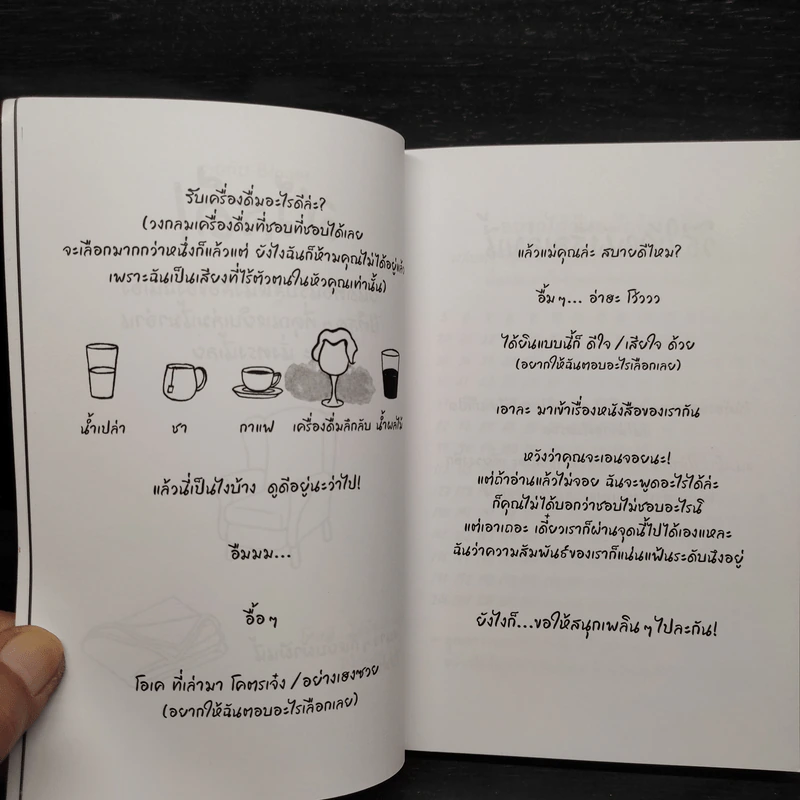 รับเครื่องดื่มอะไรดีล่ะ?
(วงกลมเครื่องดื่มที่ชอบที่ชอบได้เลย
จะเลือกมากกว่าหนึ่งก็แล้วแต่ ยังไงฉันก็ห้ามคุณไม่ได้อยู่แล้ว
เพราะฉันเป็นเสียงที่ไร้ตัวตนในหัวคุณเท่านั้น)
น้ำเปล่า
ชา
กาแฟ
เครื่องดื่มลึกลับ
น้ำผลไม้
แล้วนี่เป็นไงบ้าง ดูดีอยู่นะว่าไป!
อืมมม...
อื้อๆ
โอเค ที่เล่ามา โคตรเจ๋ง/อย่างเฮงซวย
(อยากให้ฉันตอบอะไรเลือกเลย)
แล้วแม่คุณล่ะ สบายดีไหม?
อื้มๆ... อ่าฮะ โว้ววว
ได้ยินแบบนี้ก็ ดีใจ/เสียใจ ด้วย
(อยากให้ฉันตอบอะไรเลือกเลย)
เอาละ มาเข้าเรื่องหนังสือของเรากัน
หวังว่าคุณจะเอนจอยนะ!
แต่ถ้าอ่านแล้วไม่จอย ฉันจะพูดอะไรได้ล่ะ
ก็คุณไม่ได้บอกว่าชอบไม่ชอบอะไรนี่
แต่เอาเถอะ เดี๋ยวเราก็ผ่านจุดนี้ไปได้เองแหละ
ฉันว่าความสัมพันธ์ของเราก็แน่นแฟ้นระดับนึงอยู่
ยังไงก็...ขอให้สนุกเพลินๆไปละกัน!